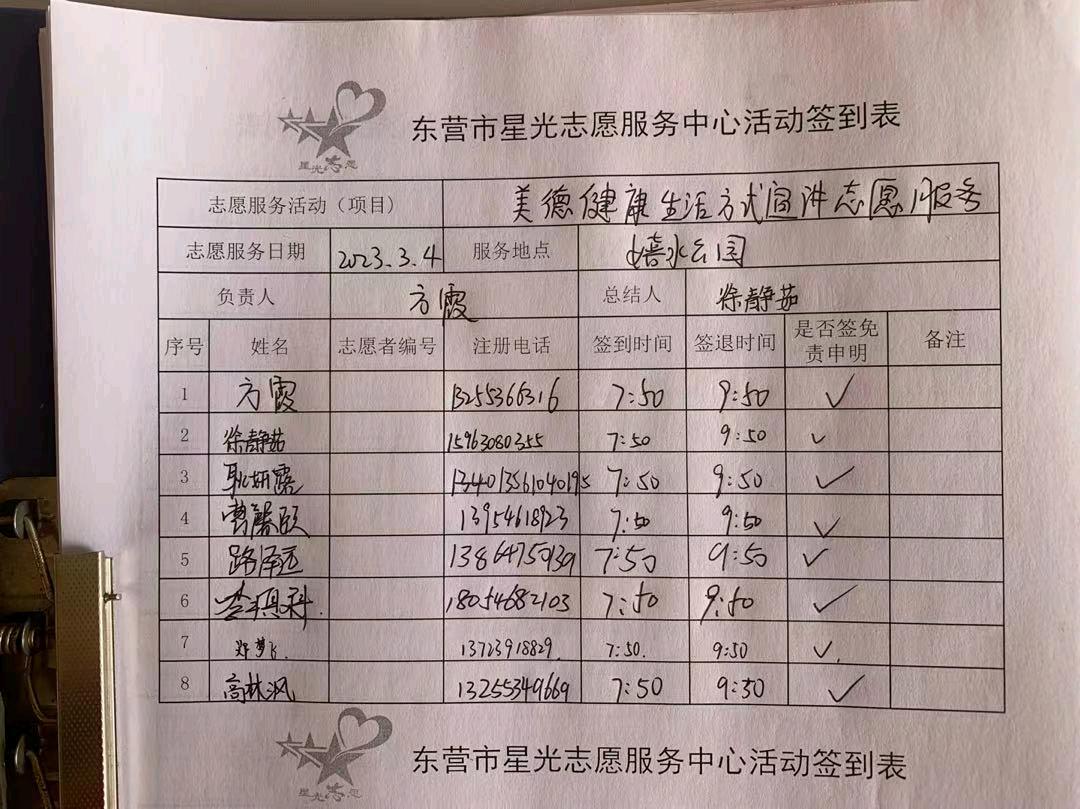 星光志愿
东营市星光志愿服务中心活动签到表
志愿服务活动（项目） 美德健康生活方式宣讲志愿服务
志愿服务日期 2023.3.4 服务地点 嬉水公园
负责人 方霞 总结人 徐静茹
序号 姓名 志愿者编号 注册电话 签到时间 签退时间 是否签免责申明 备注
1 方霞 13255366316 7:50 9:50 ✓
2 徐静茹 15963080355 7:50 9:50 ✓
3 耿妍露 1340 7:50 9:50 ✓
4 13954618923 7:50 9:50 ✓
5 路泽远 13864750139 7:50 9:50 ✓
6 18054682103 7:50 9:50 ✓
7 梦飞 13723918829 7:50. 9:50 ✓
8 高林沨 13255349669 7:50 9:50 ✓
东营市星光志愿服务中心活动签到表
星光志愿